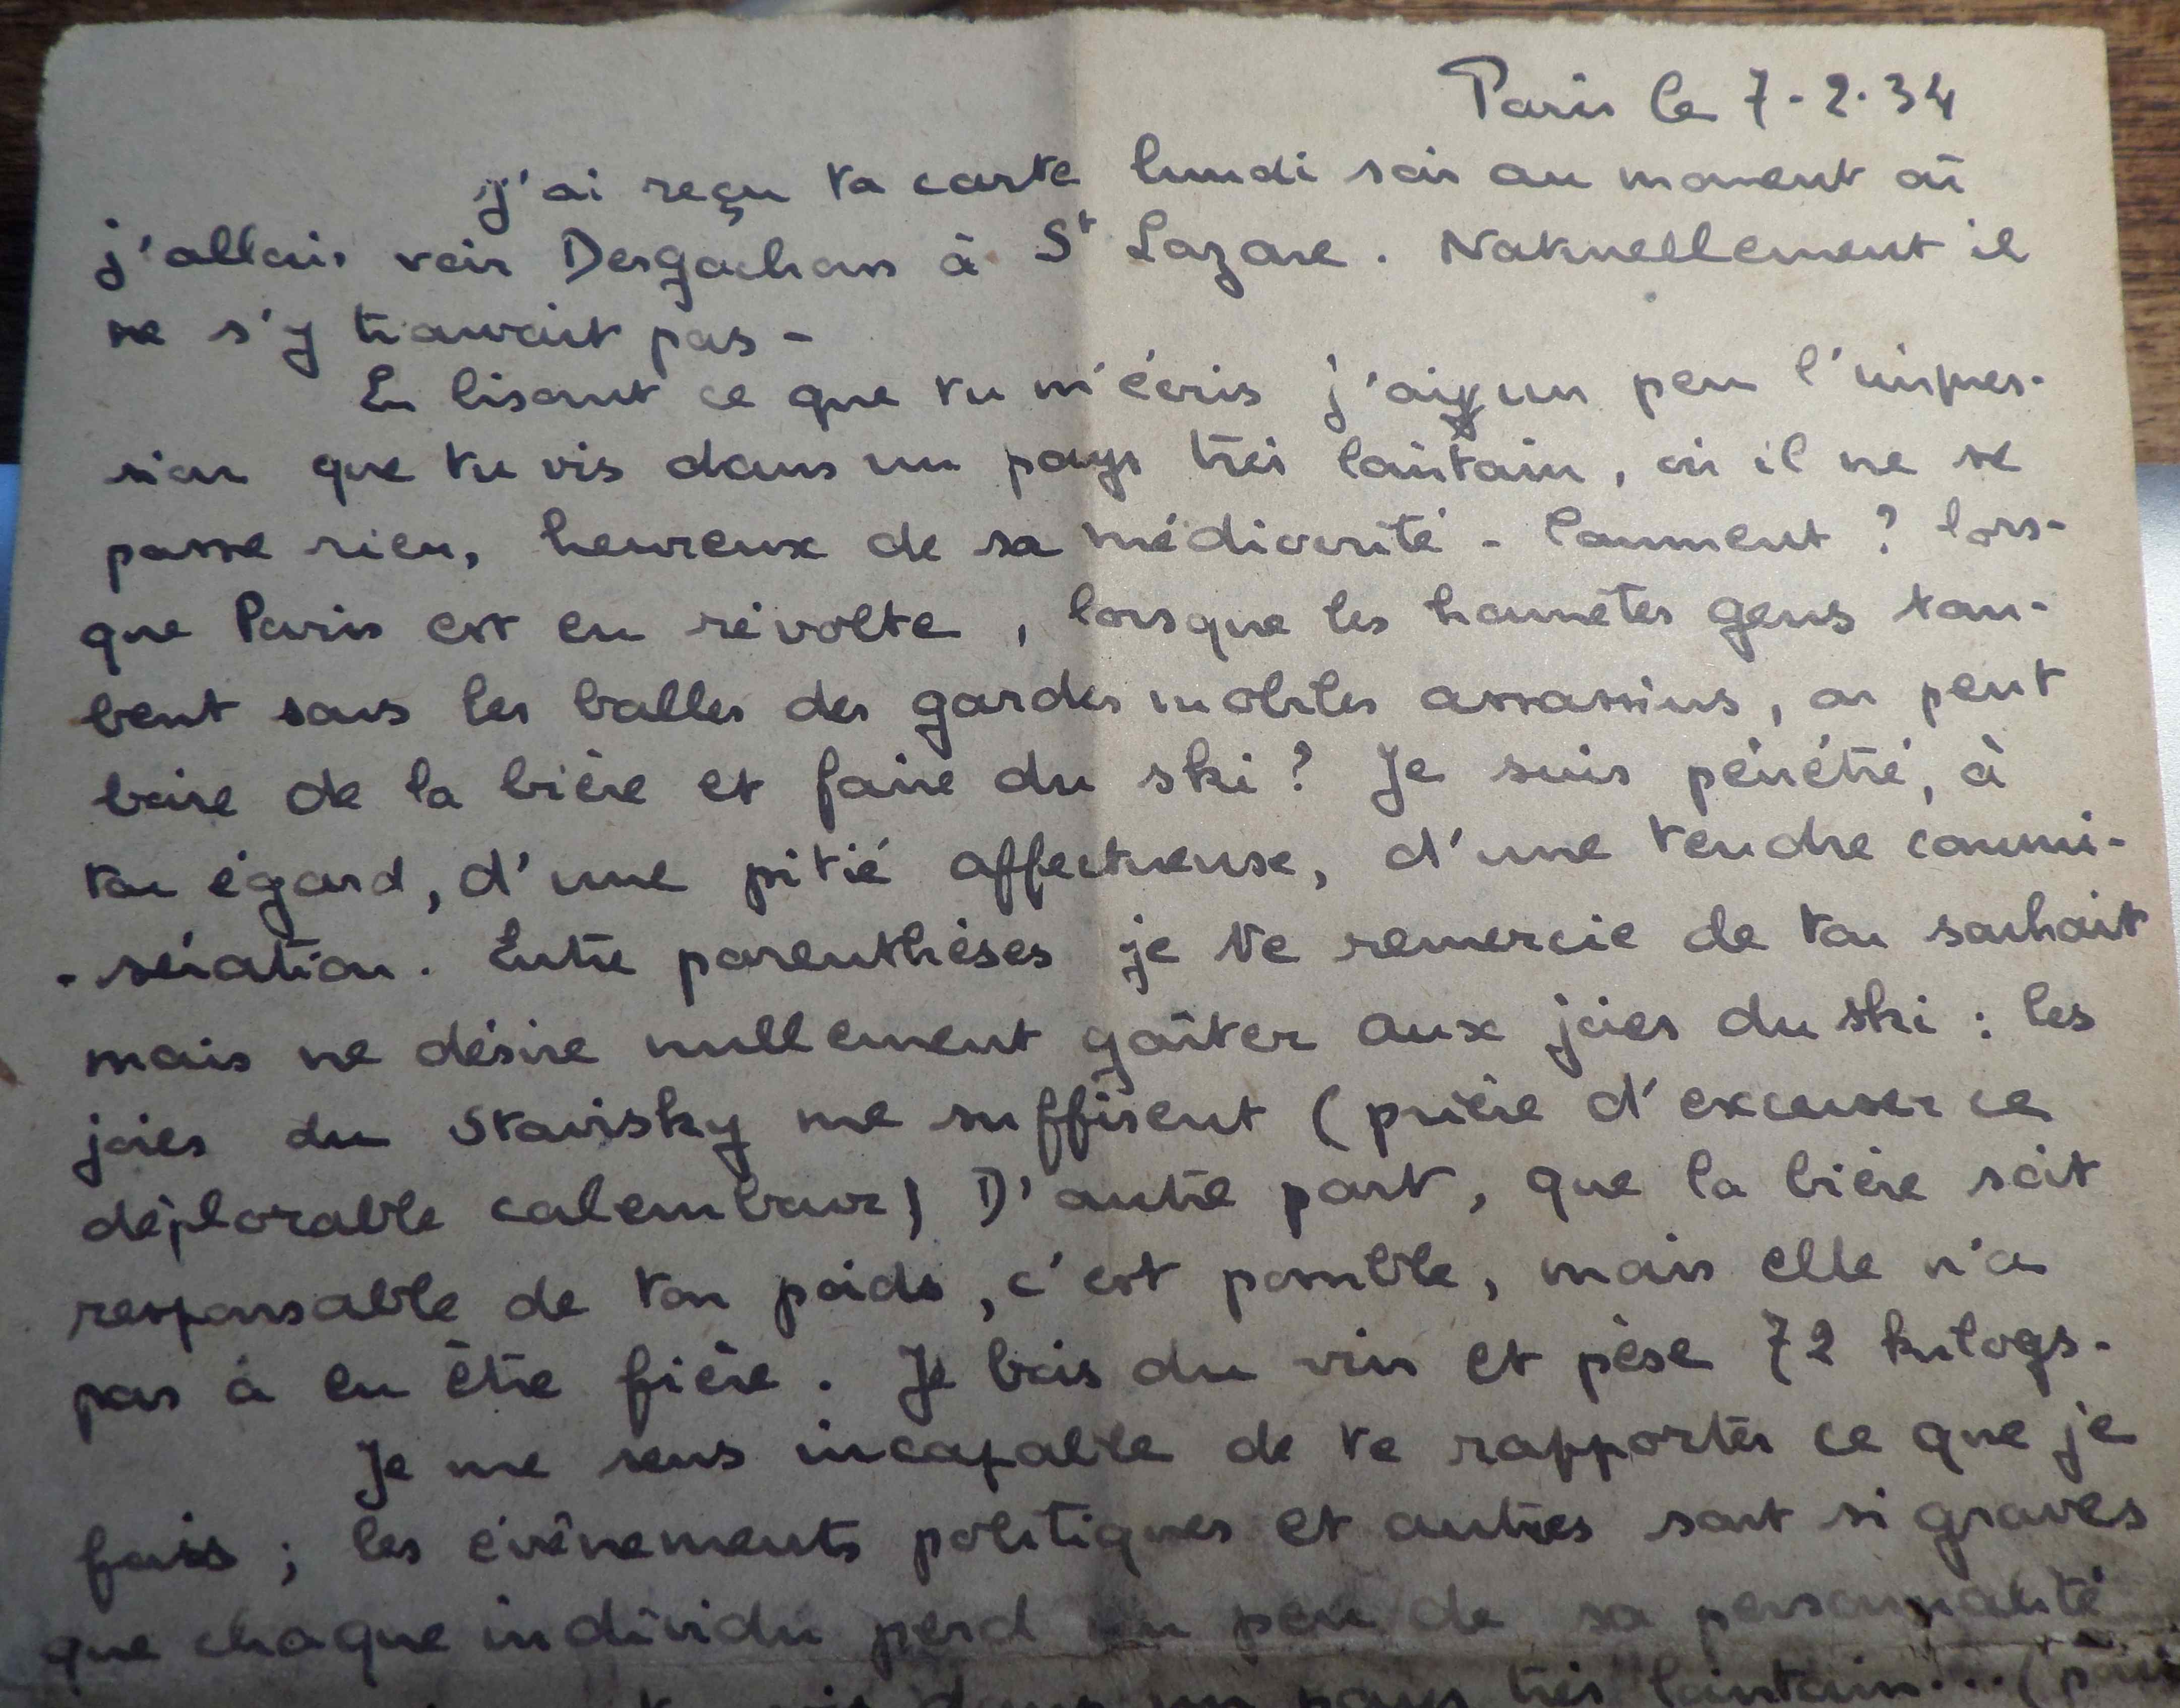 Paris le 7-2-34
J'ai reçu ta carte lundi soir au moment où
j'allais voir Desgachons à St Lazare. Naturellement il
ne s'y trouvait pas -
En lisant ce que tu m'écris j'ai un peu l'impres-
sion que tu vis dans un pays très lointain, où il ne se
passe rien, heureux de sa médiocrité - Comment ? lors-
que Paris est en révolte, lorsque les honnêtes gens tom-
bent sous les balles des gardes mobiles assassins, on peut
boire de la bière et faire du ski ? Je suis pénétré, à
ton égard, d'une pitié affectueuse, d'une tendre commi-
-sération. Entre parenthèses je te remercie de ton souhait
mais ne désire nullement goûter aux joies du ski : les
joies du Stavisky me suffisent (prière d'excuser ce
déplorable calembour) D'autre part, que la bière soit
responsable de ton poids, c'est possible, mais elle n'a
pas à en être fière. Je bois du vin et pèse 72 kilogs.
Je me sens incapable de te rapporter ce que je
fais ; les évènements politiques et autres sont si graves
que chaque individu perd un peu de sa personnalité
vis dans un pays très lointain...(